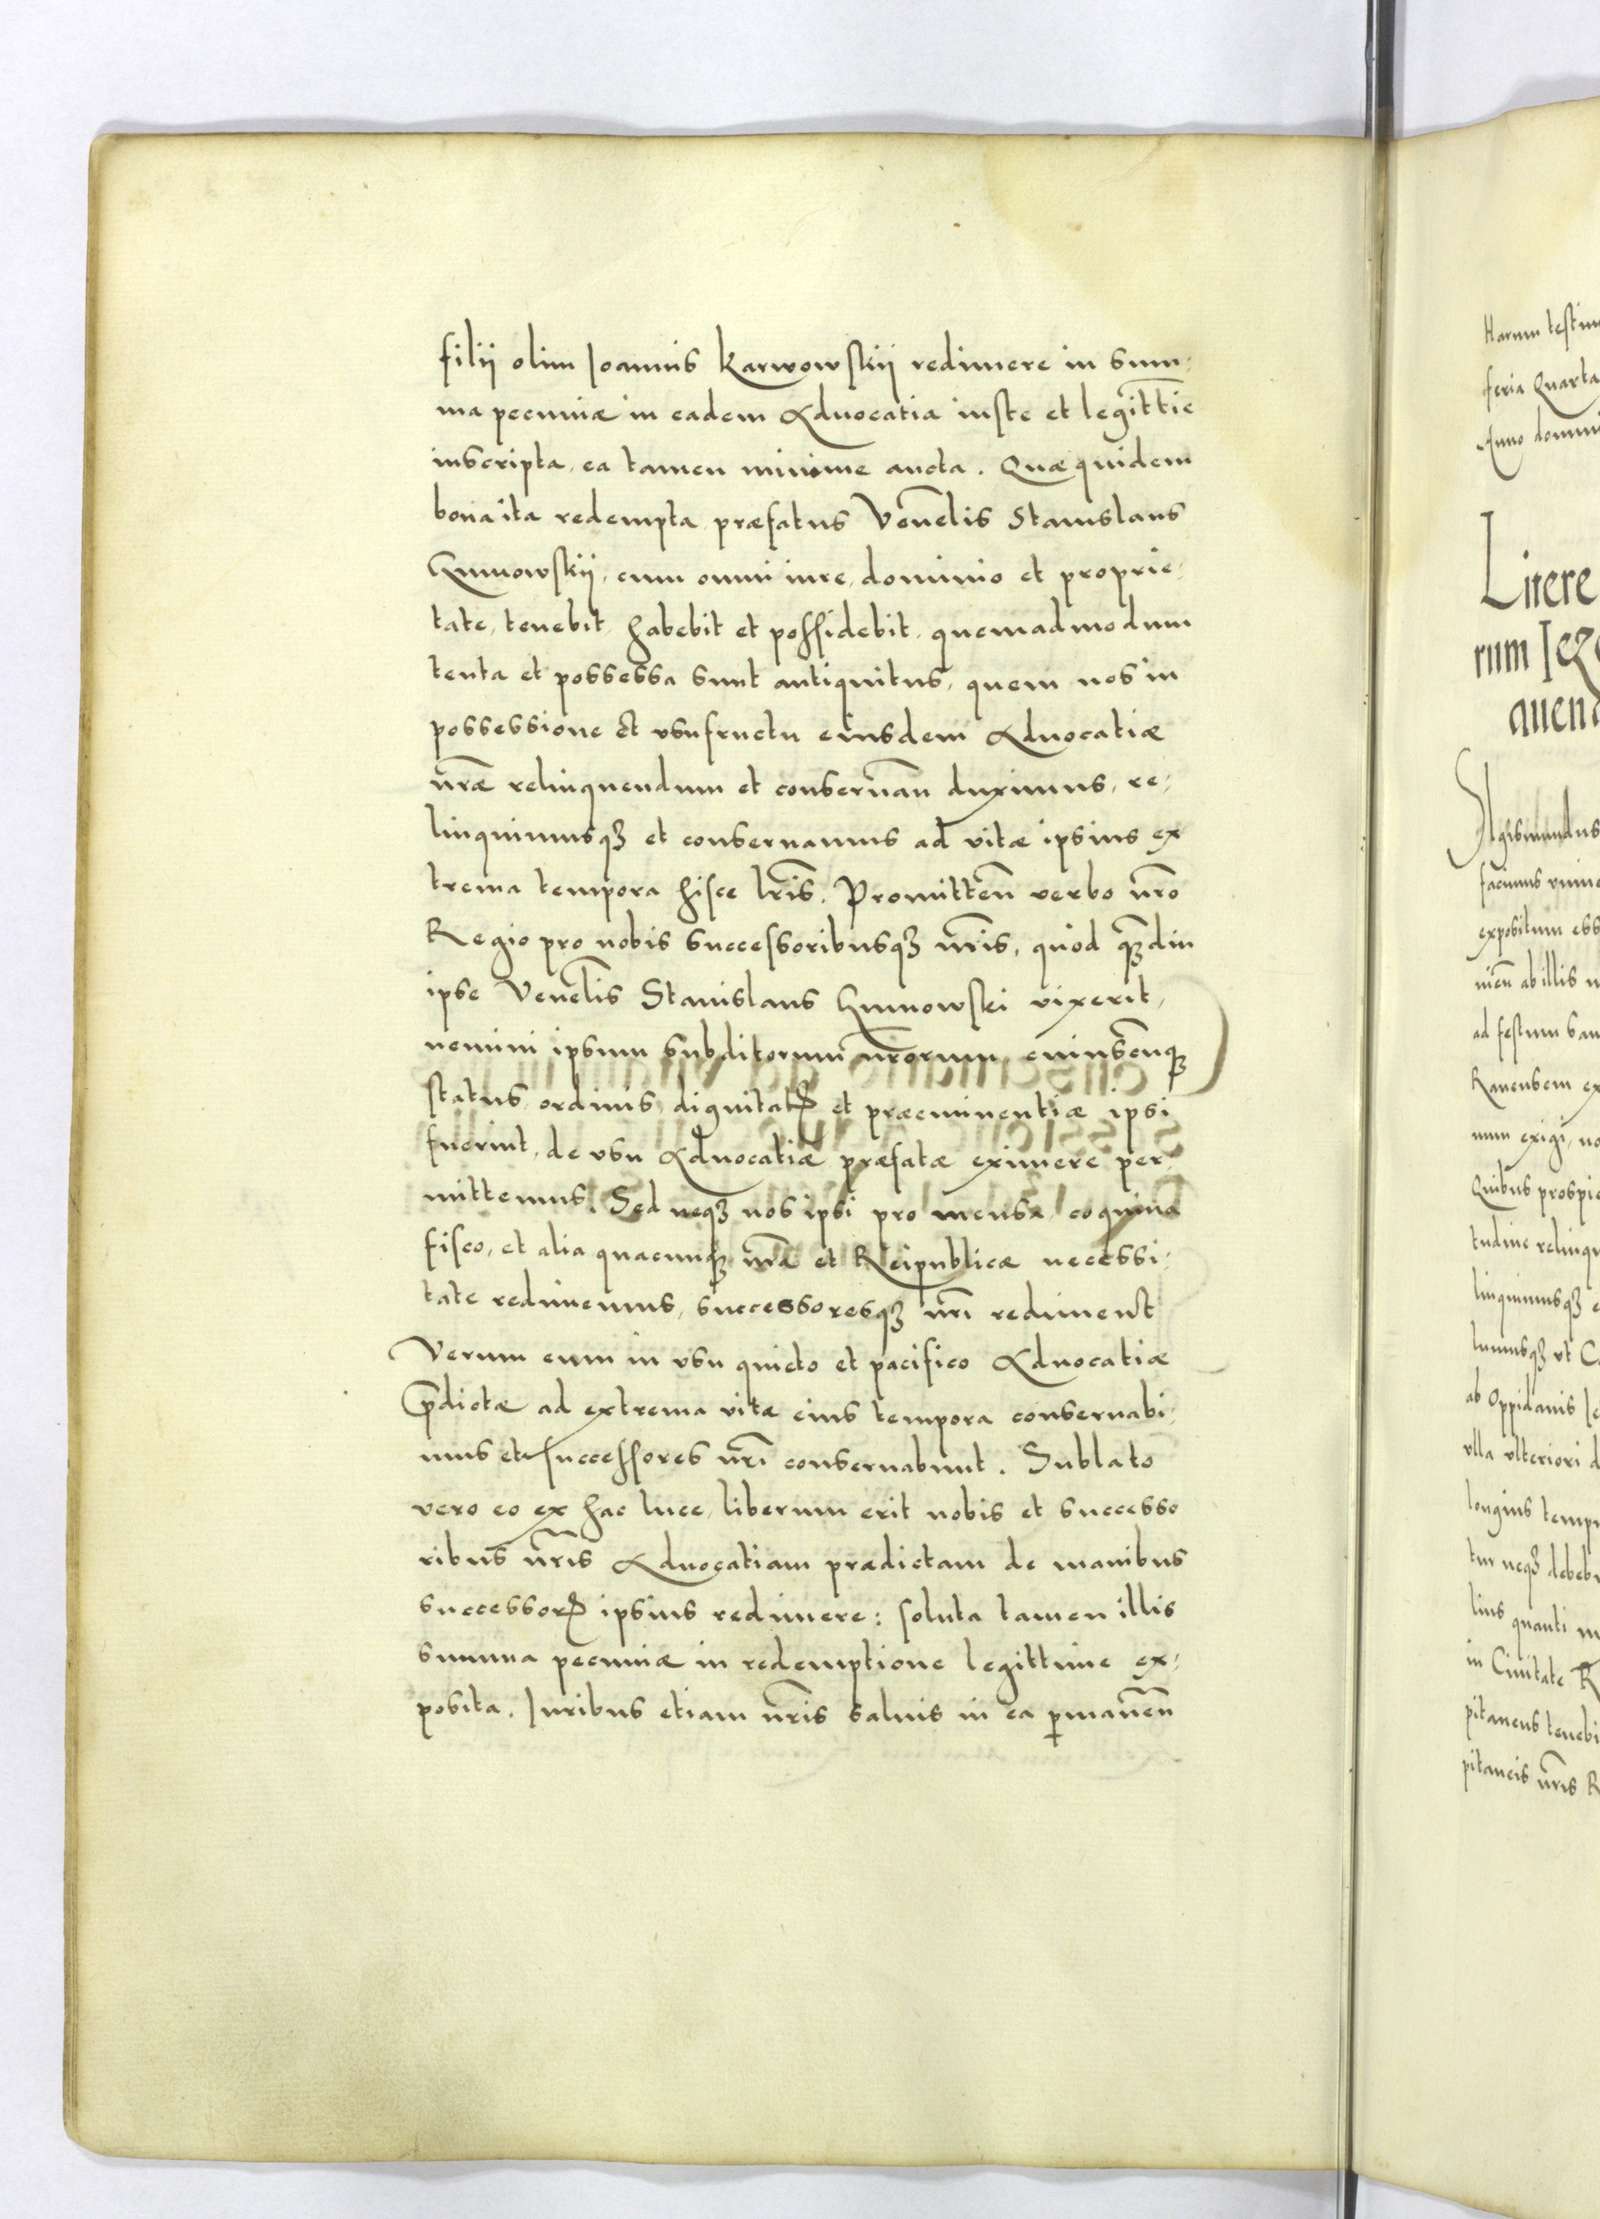 filii olim Ioannis Karwowskii redimere in sum,
ma pecuniæ in eadem Aduocatia iuste et legitt̃ie
inscripta, ea tamen minime aucta. Quæ quidem
bona ita redempta præfatus Veñelis Stanislaus
cum omni iure, dominio et proprie,
tate, tenebit, habebit et possidebit, quemadmodum
tenta et possessa sunt antiquitus, quem nos in
possessione et vsufructu eiusdem Aduocatiæ
ñræ relinquendum et conseruañ duximus, re,
linquimusqꝫ et conseruamus ad vitæ ipsius ex
trema tempora hisce lr̃is. Promitteñ verbo ñro
Regio pro nobis successoribusqꝫ ñris, quod qꝫ̃diu
ipse Veñelis Stanislaus vixerit,
nemini ipsum subditorum ñrorum, cuiuscũqꝫ
status, ordinis, dignitatꝭ et præeminentiæ ipsi
fuerint, de vsu Aduocatiæ præfatæ eximere per,
mittemus. Sed neqꝫ nos ipsi pro mensa, coquina
fisco, et alia quacunqꝫ ñra et Reipublicæ necessi,
tate redimemus, successoresqꝫ ñri rediment
Verum eum in vsu quieto et pacifico Aduocatiæ
p̃dictæ ad extrema vitæ eius tempora conseruabi,
mus et successores ñri conseruabunt. Sublato
vero eo ex hac luce, liberum erit nobis et successo
ribus ñris Aduocatiam prædictam de manibus
successorꝝ ipsius redimere: soluta tamen illis
summa pecuniæ in redemptione legittime ex,
posita. Iuribus etiam ñris saluis in ea ꝑmaneñ
Harum testim
feria Quarta
Anno domini
Litere
rum Iez
auen
Sigismundus
facimus
expositum ess
ab illis
ad festum san
Rauensem ex
num exigi, no
Quibus prospic
tudine relinqu
linquimusqꝫ
lumusqꝫ vt Ca
ab Oppidanis Ie
vlla vlteriori d
longius temp
tur neqꝫ debeb
lius quanti m
in Ciuitate R
pitaneus tenebi
pitaneis ñris R